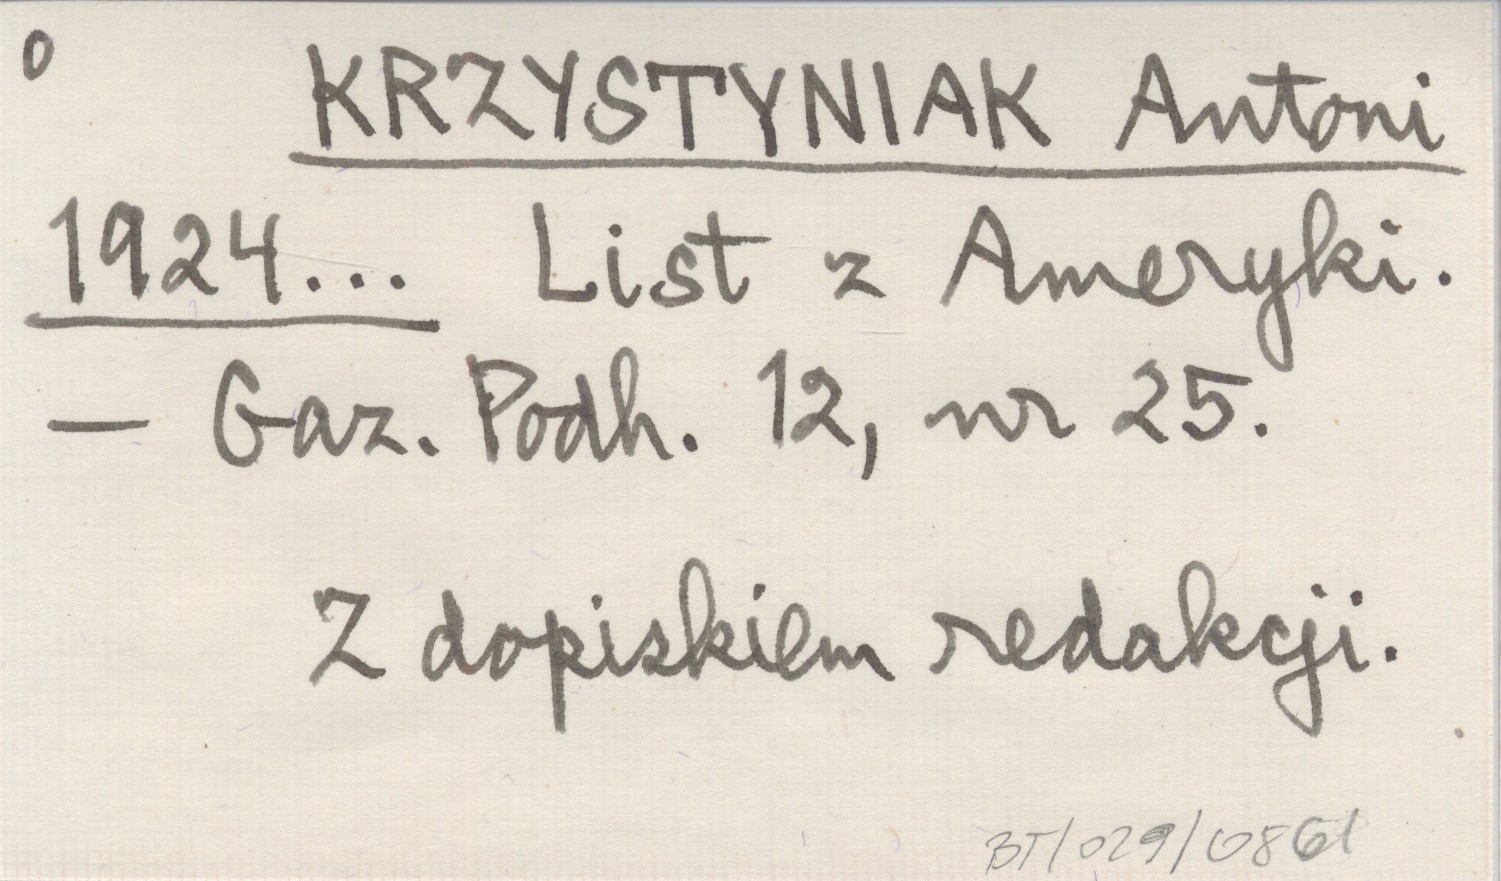 0
KRZYSTYNIAK Antoni
1924... List z Ameryki.
— Gaz. Podh. 12, nr 25.
Z dopiskiem redakcji.
BT/029/0861